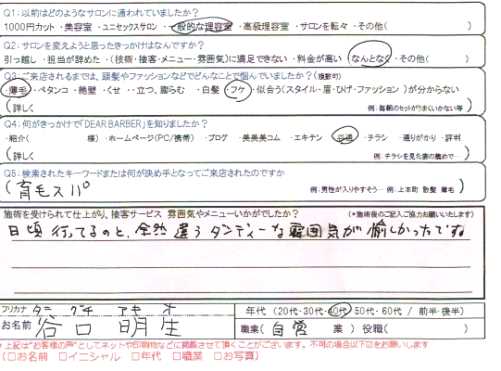 Q1:以前はどのようなサロンに通われていましたか?
1000円カット ・美容室 ・ユニセックスサロン ・一般的な理容室 ・高級理容室 ・サロンを転々 ・その他(　　)
Q2:サロンを変えようと思ったきっかけはなんですか?
引っ越し ・担当が辞めた ・(技術・接客・メニュー・雰囲気)に満足できない ・料金が高い ・なんとなく ・その他(　　)
Q3:ご来店されるまでは、頭髪やファッションなどでどんなことで悩んでいましたか?(複数可)
・薄毛 ・ペタンコ ・絶壁 ・くせ ・立つ、膨らむ ・白髪 ・フケ ・似合う(スタイル・眉・ひげ・ファッション )が分からない
(詳しく　　例:毎朝のセットがうまくいかない等 )
Q4:何がきっかけで「DEAR BARBER」を知りましたか?
・紹介(　　様) ・ホームページ(PC/携帯) ・ブログ ・美美美コム ・エキテン ・チラシ ・通りがかり ・評判
(詳しく　　例:チラシを見た妻の薦めで )
Q5:検索されたキーワードまたは何が決め手となってご来店されたのですか
(育毛スパ　　例:男性が入りやすそう… 例:上本町 散髪 薄毛 )
施術を受けられて仕上がり、接客サービス 雰囲気やメニューいかがでしたか?　(*施術後のご記入ご協力お願いします)
日頃 行ってるのと、全然 違う ダンディーな 雰囲気が 愉しかったですね
フリカナ タニ グチ アキ オ
お名前 谷口 明生
年代 (20代・30代・40代・50代・60代 / 前半・後半)
職業( 自営 業 ) 役職(　　)
*上記は"お客様の声"としてネットや印刷物などに掲載させて頂くことがございます。不可の場合は以下□をお願いします
(□お名前 □イニシャル □年代 □職業 □お写真)